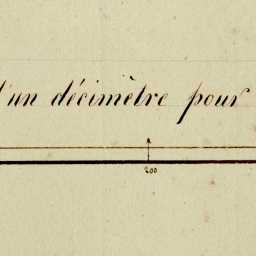 d'un décimètre pour
200